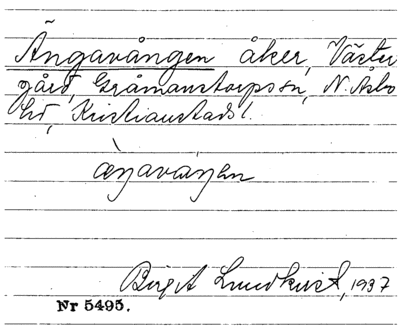 Ängavången åker, Väster
gård, Gråmanstorps sn, N. Åsbo
hd, Kristianstads l.
àŋavàŋen
Birgit Lundkvist, 1937
Nr 5495.